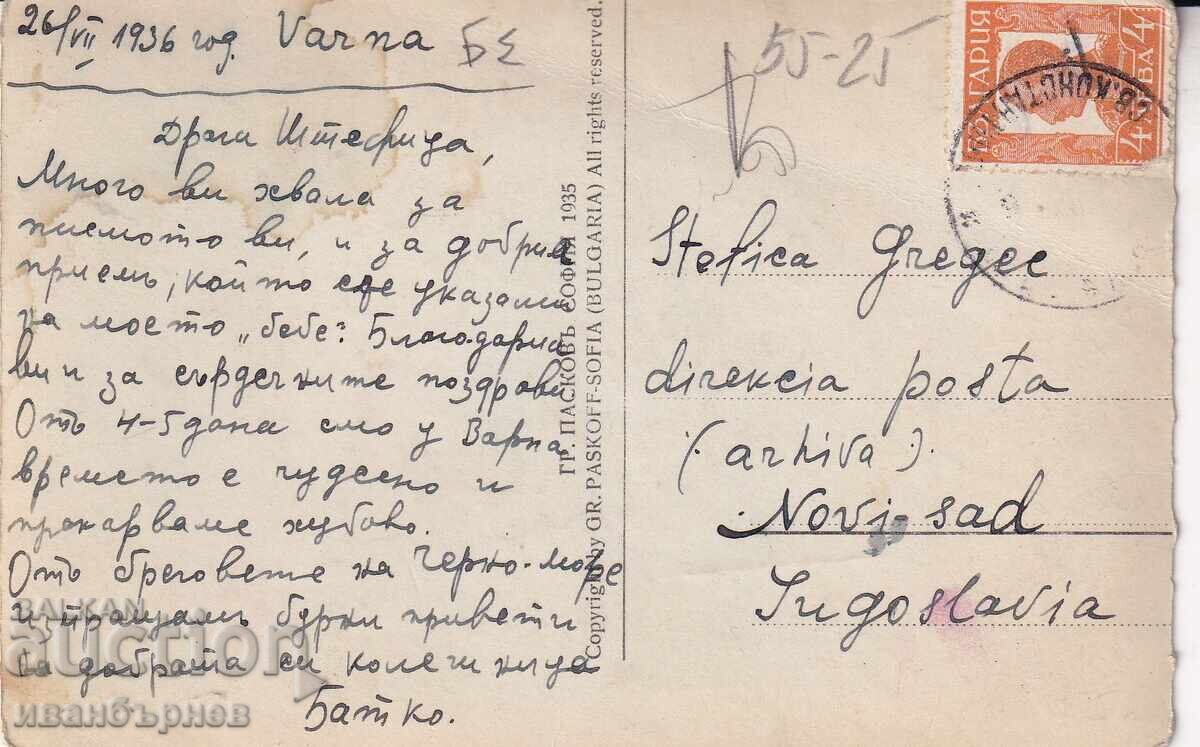 26/VII 1936 год. Varna
БΣ
55-25
Драги Штефица,
Много ви хвала за
писмото ви, и за добрия
приемъ, който сте указали
на моето „бебе". Благодаря
ви и за сърдечните поздрави
Отъ 4-5 дана смо у Варна
времето е чудесно и
прекарваме хубаво.
Отъ бреговете на Черно-море
изпращамъ бурни привети
на добрата си колегиница
Батко.
ГР. ПАСКОВЪ СОФИЯ 1935
Copyright by GR. PASKOFF-SOFIA (BULGARIA) All rights reserved.
БЪЛГАРИЯ
4 ЛЕВА 4
СВ. КОНСТАНТИНЪ
Stefica Gregec
direkcia posta
(arhiva).
Novi-sad
Jugoslavia
BALKAN
auction
иванбърнев